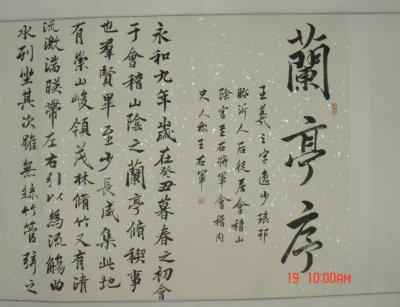 蘭亭序
王羲之字逸少琅邪
臨沂人后徙居會稽山
陰官至右將軍會稽内
史人称王右軍
永和九年歲在癸丑暮春之初會
于會稽山陰之蘭亭脩稧事
也羣賢畢至少長咸集此地
有崇山峻領茂林脩竹又有清
流激湍暎帶左右引以為流觴曲
水列坐其次雖無絲竹管弦之
19 10:00AM